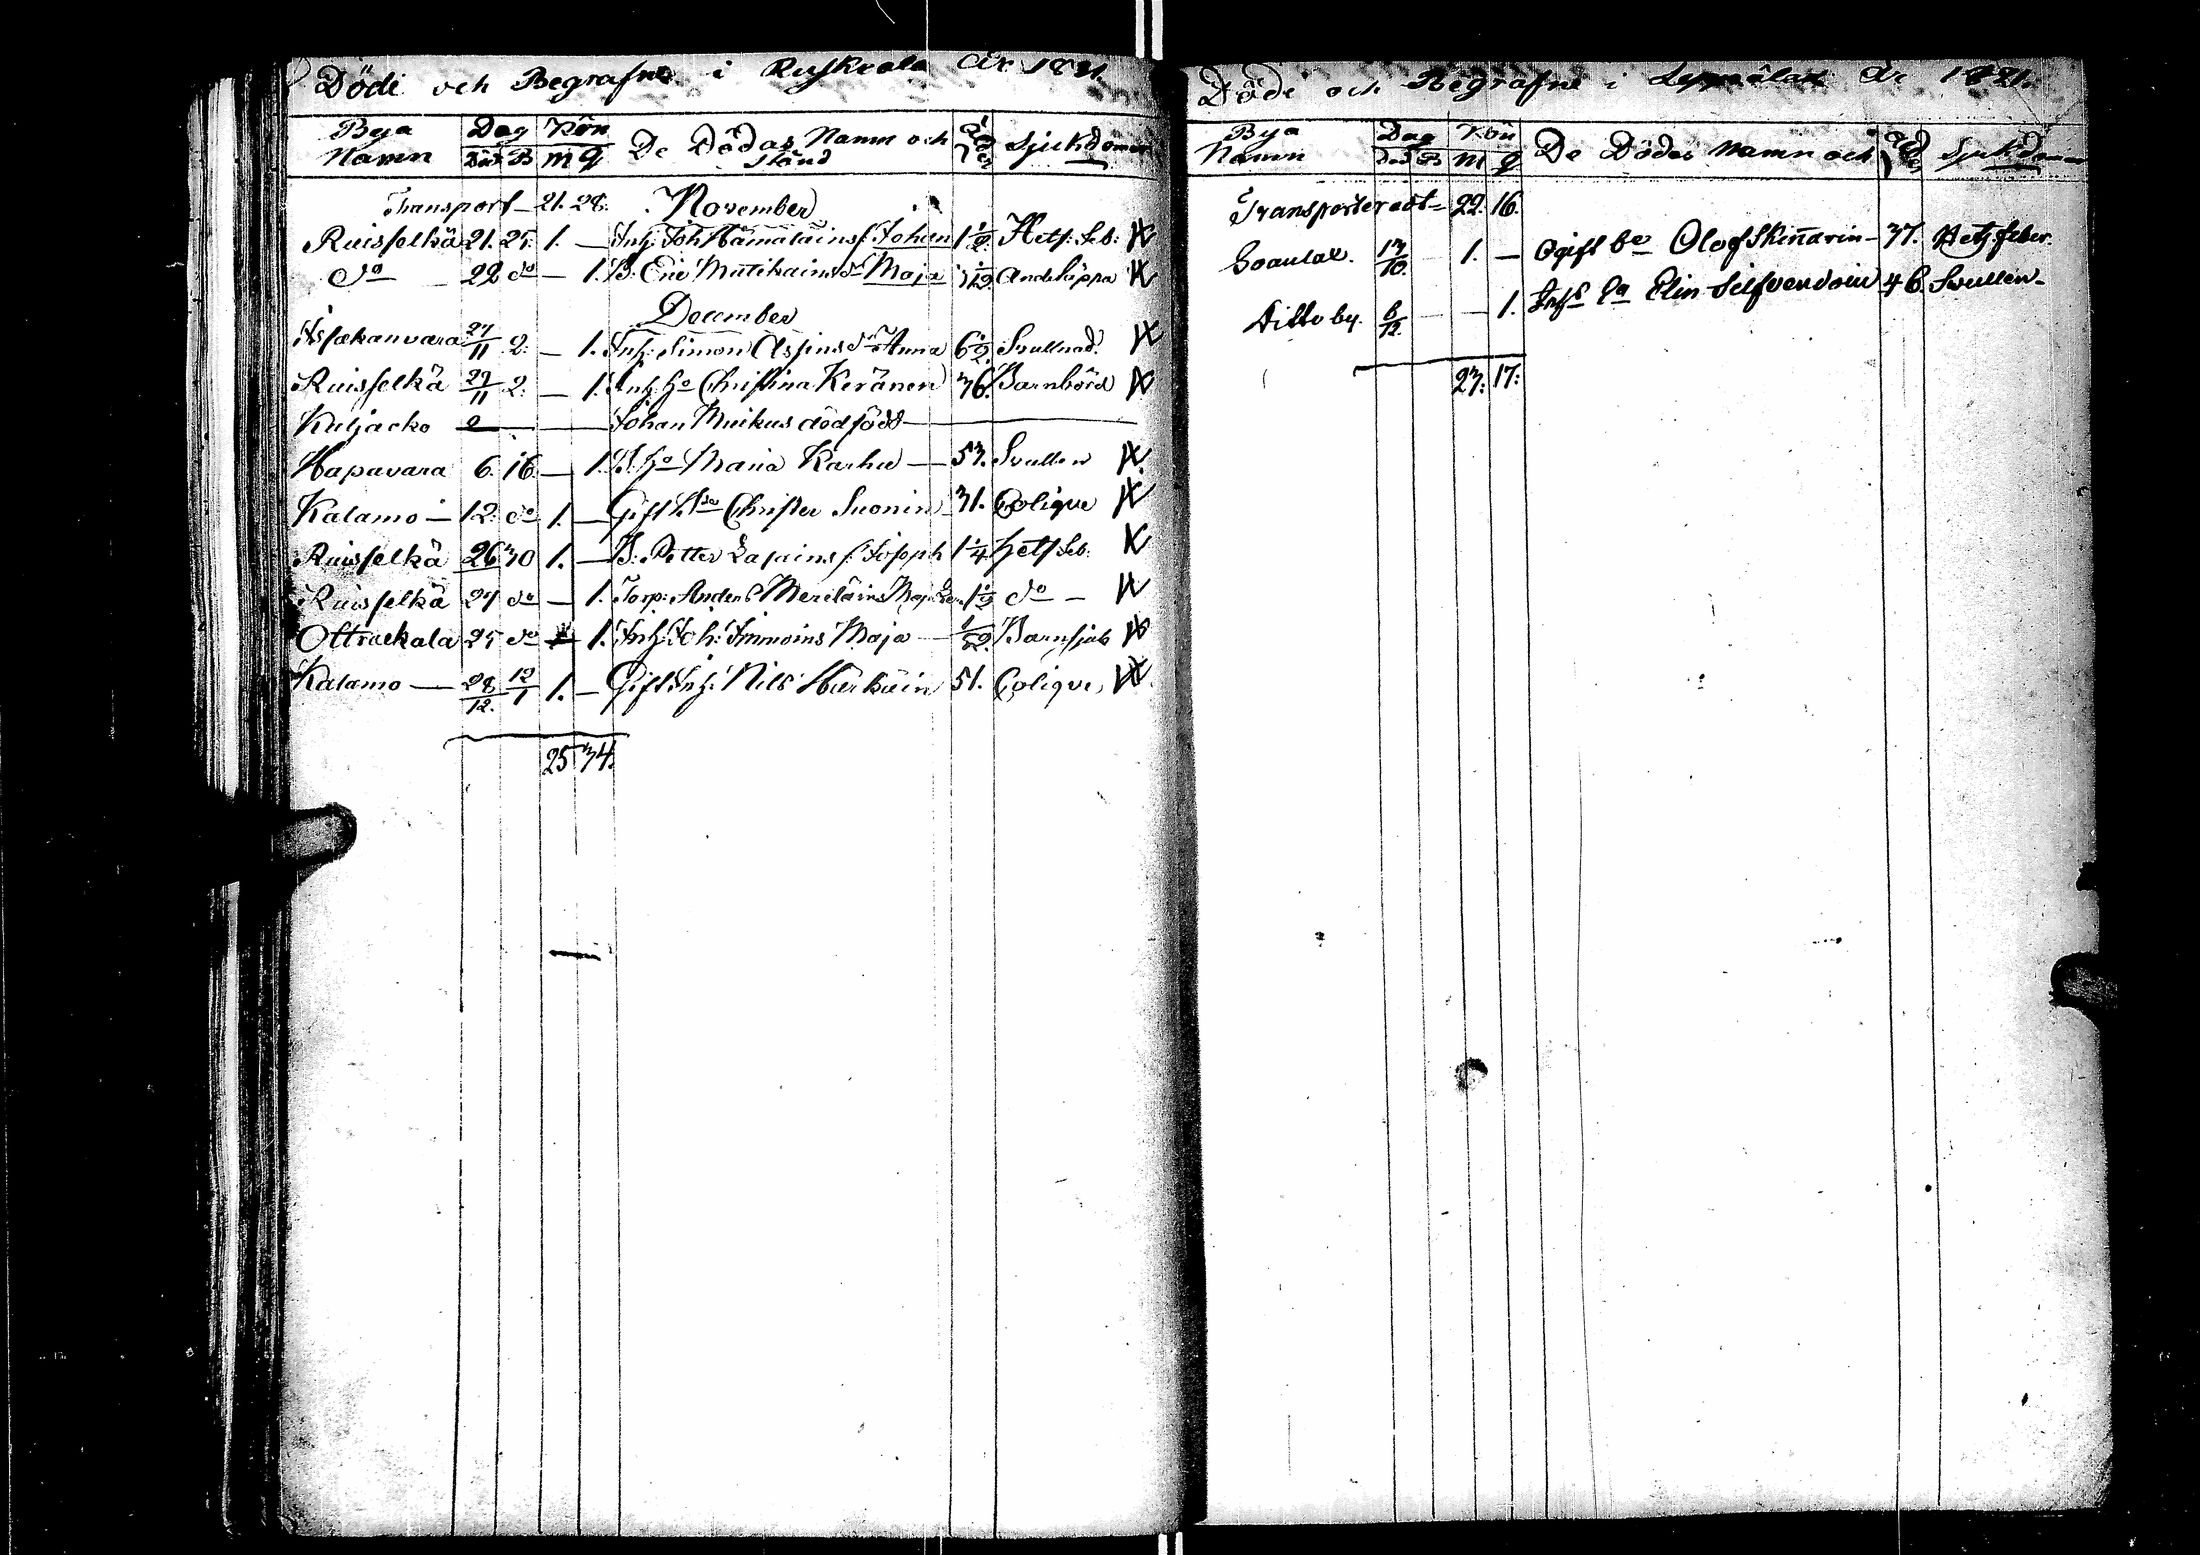 Döde och Begrafne i Ruskeala År 1821
Bya Namn Dag Död B Kön M Q De Dödas Namn och stånd Ålder Sjukdomar
Transport 21. 28. November
Ruisselkä 21. 25. 1. — Inh: Joh Hämäläins s: Johan 1 1/2 Hets: feb:
do 22 do — 1. B. Eric Mutikains dr Maja Andtäppa
December
27/11 2. — 1. Inh: Simon Asjins dr Anna 6 1/2 Svullnad.
Ruisselkä 29/11 2. — 1. Inh: ho Christina Keränen 36. Barnbörd
Kuljacko — Johan Muikus dödfödt —
Hapavara 6. 16. — 1. B. ho Maria Karhu — 53. Svullen
Kalamo — 12. do 1. — Gift Christer Suonin 31. Colique
Ruisselkä 26 30 1. — B. Petter s: Joseph 1 1/4 Hets feb:
Ruisselkä 27 do — 1. Torp: Anders Meriläins Maja 1 1/2 do —
Ottrackala 25 do 1. Inh: Joh: Immoins Maja — 1/52 Barnsjuk
Kalamo — 28/12. 12/1 1. — Gift Inh: Nils Hurkuin 51. Colique
25 34.
Döde och Begrafne i Leppälax År 1821.
Bya Namn Dag Död B Kön M Q De Dödas Namn och Ålder Sjukdomar
Transporteradt — 22. 16.
Soanlax. 13/10. — 1. — Ogift be Olof Skinnarin — 37. Hetz feber.
Ditto by. 6/12. — — 1. Inhs Ea Elin Silfvendoin 46. Svullen —
23. 17.